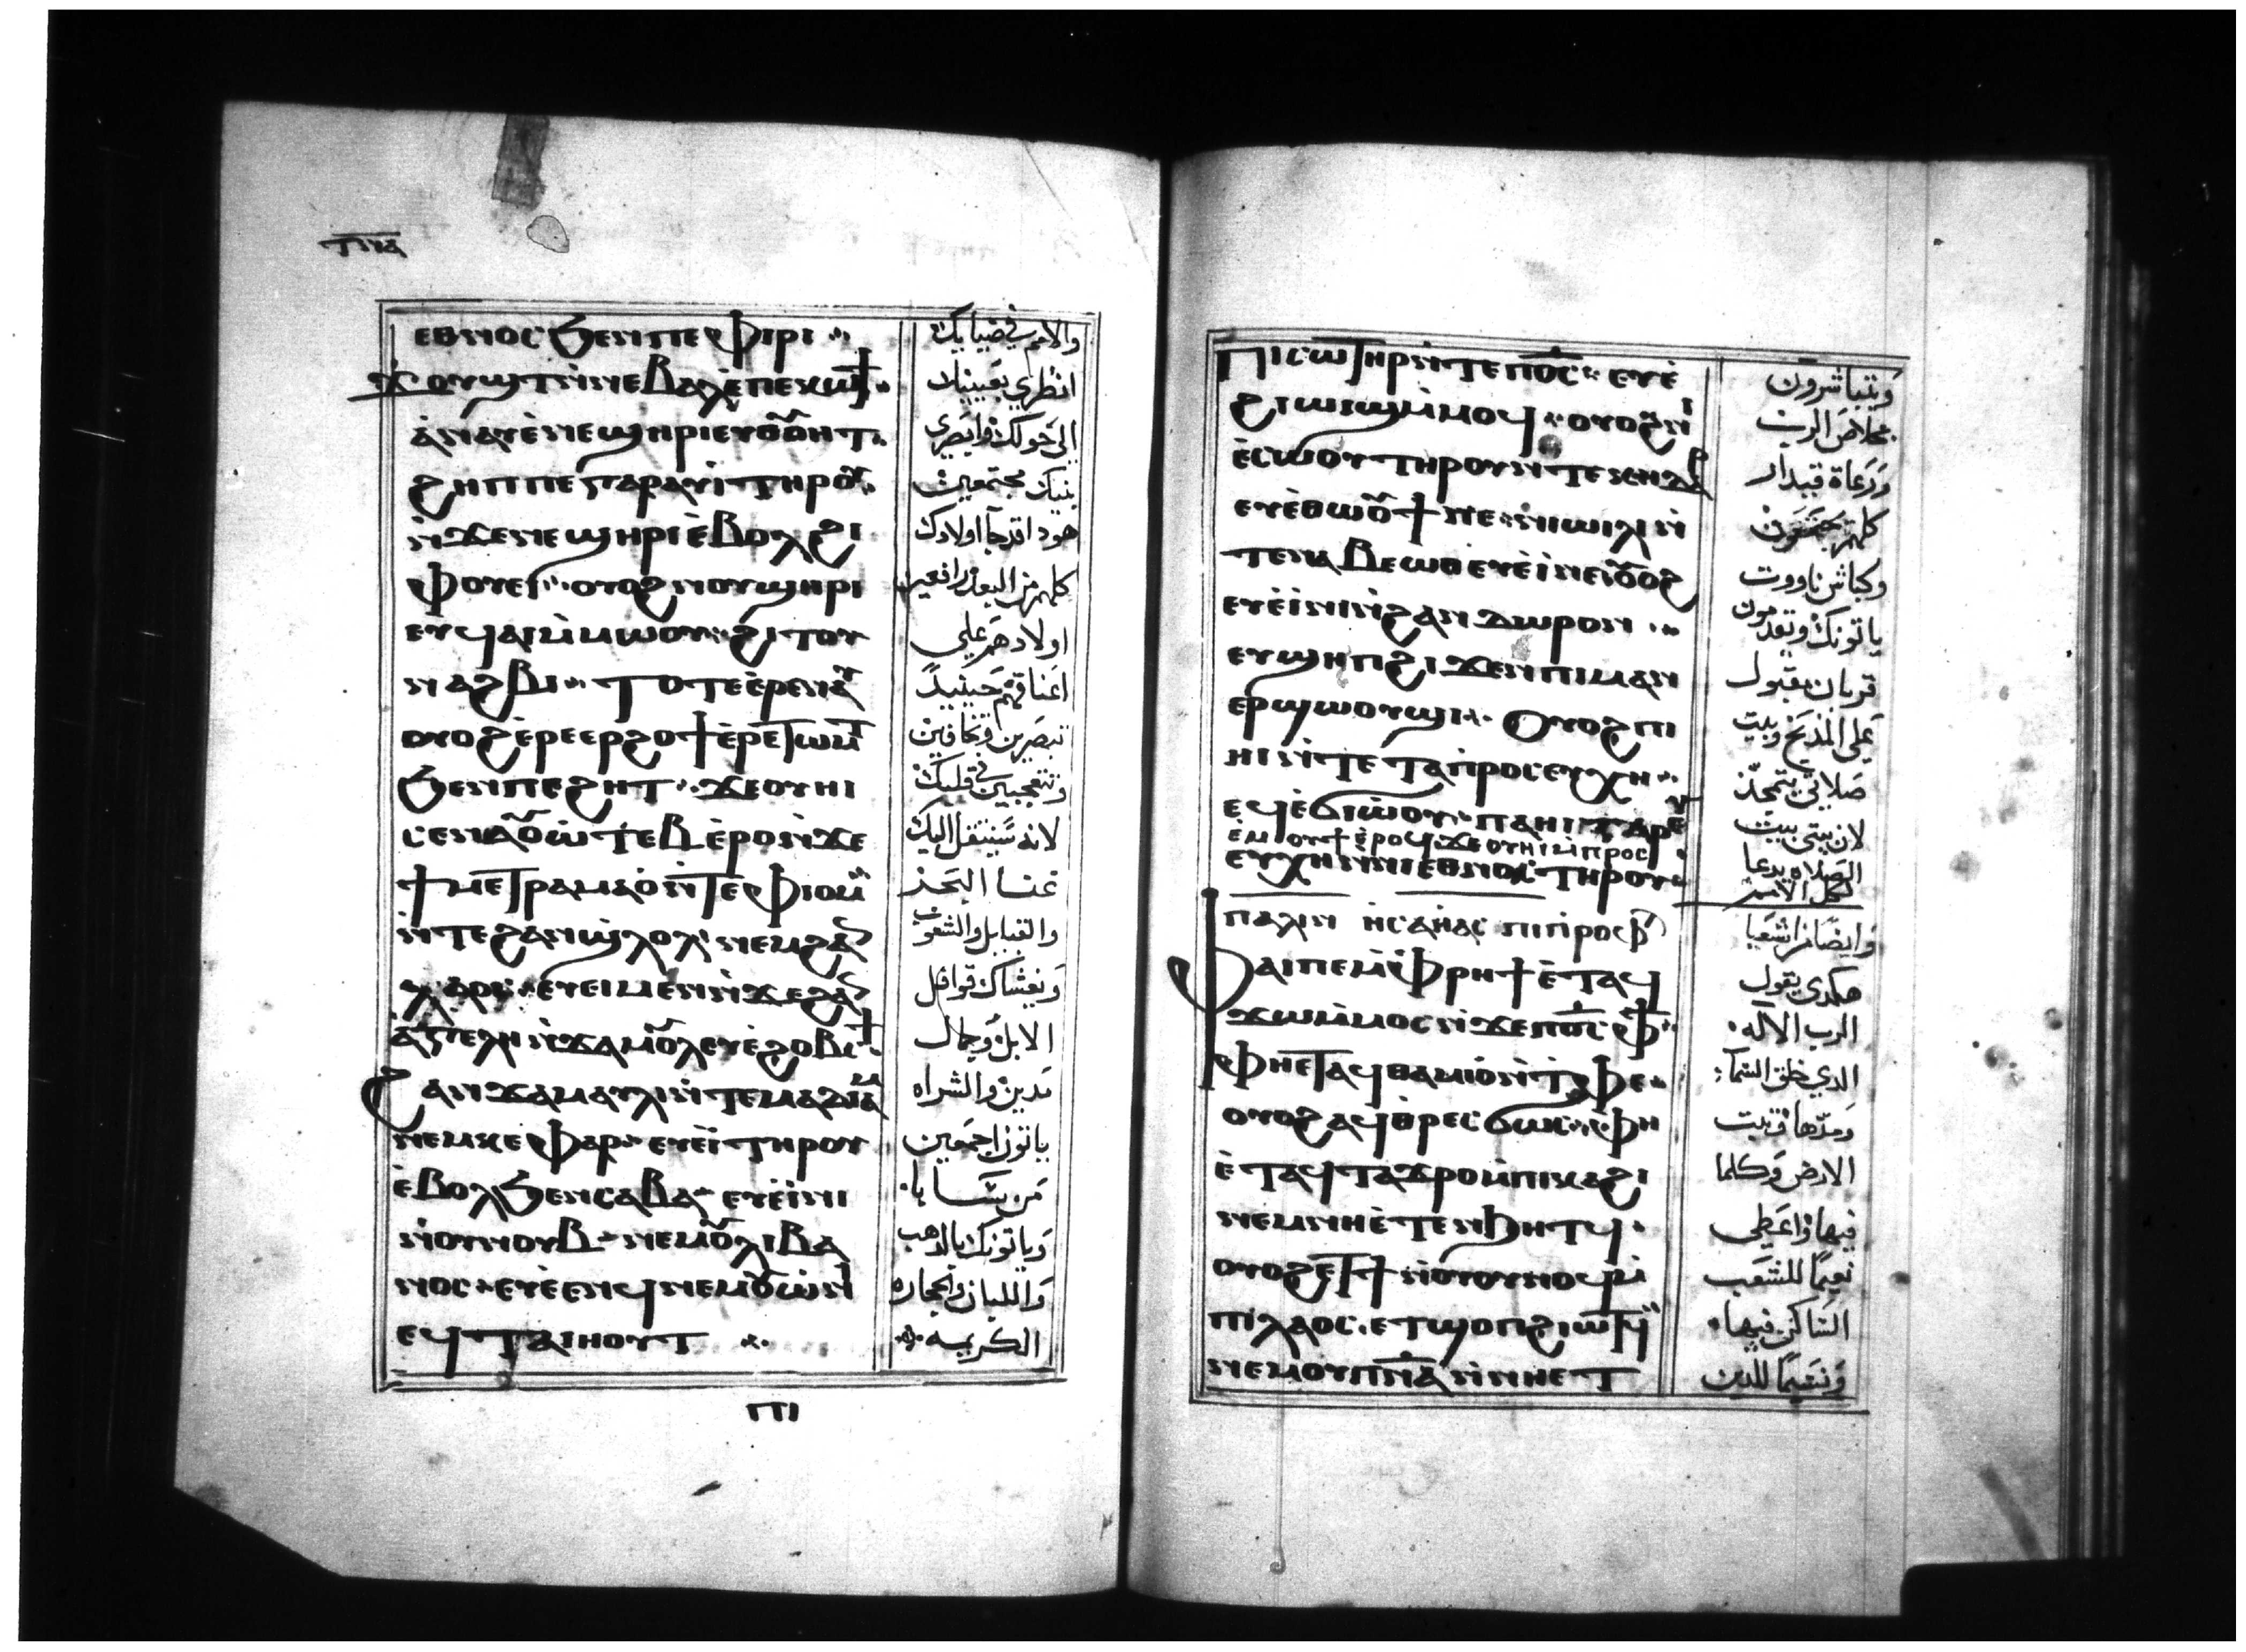 ⲧⲛⲁ
ⲉⲑⲛⲟⲥ ϧⲉⲛⲡⲉⲫⲓⲣⲓ
ϫⲟⲩϣⲧ ⲛ̀ⲛⲉⲃⲁⲗ ⲉ̀ⲡⲉⲕⲱϯ
ⲁ̀ⲛⲁⲩ ⲉ̀ⲛⲉϣⲏⲣⲓ ⲉⲩⲑⲟⲩⲏⲧ
ϩⲏⲡⲡⲉ ⲅⲁⲣ ⲁⲩⲓ̀ ⲧⲏⲣⲟⲩ
ⲛ̀ϫⲉⲛⲉϣⲏⲣⲓ ⲉ̀ⲃⲟⲗϩⲓ
ⲫⲟⲩⲉⲓ ⲟⲩⲟϩ ⲛⲟⲩϣⲏⲣⲓ
ⲉⲩϥⲁⲓ ⲙ̀ⲙⲱⲟⲩ ϩⲓⲧⲟⲩ
ⲛⲁϩⲃⲓ ⲧⲟⲧⲉ ⲉ̀ⲣⲉⲛⲁⲩ
ⲟⲩⲟϩ ⲉ̀ⲣⲉⲉⲣϩⲟϯ ⲉ̀ⲣⲉⲧⲱⲙⲧ
ϧⲉⲛⲡⲉϩⲏⲧ ϫⲉⲟⲩⲏⲓ
ⲥⲉⲛⲁⲟⲩⲱ̀ⲧⲉⲃ ⲉ̀ⲣⲟ ⲛ̀ϫⲉ
ϯⲙⲉⲧⲣⲁⲙⲁⲟ̀ ⲛ̀ⲧⲉⲫⲓⲟⲙ
ⲛ̀ⲧⲉϩⲁⲛϣⲗⲟⲗ ⲛⲉⲙϩⲁⲛ
ⲗⲁⲟⲥ ⲉⲩⲉⲓ ⲙⲉⲛ ⲛ̀ϫⲉϩⲁⲛ
ⲁ̀ⲅⲉⲗⲏ ⲛ̀ϫⲁⲙⲟⲩⲗ ⲉⲩⲉ̀ϩⲟⲃⲥϯ
ϩⲁⲛϫⲁⲙⲁⲩⲗⲓ ⲛ̀ⲧⲉⲙⲁⲇⲓⲁⲙ
ⲛⲉⲙⲕⲉⲫⲁⲣ ⲉⲩⲉ̀ⲓ̀ ⲧⲏⲣⲟⲩ
ⲉ̀ⲃⲟⲗϧⲉⲛⲥⲁⲃⲁ ⲉⲩⲉ̀ⲓ̀ⲛⲓ
ⲛ̀ⲟⲩⲛⲟⲩⲃ ⲛⲉⲙⲟⲩⲗⲓⲃⲁ
ⲛⲟⲥ ⲉⲩⲉ̀ⲉⲛϥ ⲛⲉⲙⲟⲩⲱ̀ⲛⲓ
ⲉϥⲧⲁⲓⲏⲟⲩⲧ
ⲡⲓ
والامم في ضيايك
انظري بعينيك
الى حولك وابصري
بنيك مجتمعين
هودا قد جآ اولادك
كلهم من البعد رافعين
اولادهم على
اعناقهم حينيدً
تبصرين وتخافين
وتتعجبين في قلبك
لانه سينتقل اليك
غنا البحر
والقبايل والشعوب
وتغشاك قوافل
الابل وجمال
مدين والشراه
ياتون اجمعين
من سبا
وياتونك بالدهب
واللبان والحجاره
الكريمه
ⲡⲓⲥⲱⲧⲏⲣ ⲛ̀ⲧⲉⲡⲟ̅ⲥ̅ ⲉⲩⲉ̀
ϩⲓⲱⲓϣ ⲙ̀ⲙⲟϥ ⲟⲩⲟϩ ⲛⲓ
ⲉ̀ⲥⲱⲟⲩ ⲧⲏⲣⲟⲩ ⲛ̀ⲧⲉⲕⲏⲇⲁⲣ
ⲉⲩⲉ̀ⲑⲱⲟⲩϯ ⲛⲉ ⲛⲓⲱⲓⲗⲓ ⲛ̀
ⲧⲉⲛⲁⲃⲉⲱⲑ ⲉⲩⲉ̀ⲓ̀ ⲛⲉ ⲟⲩⲟϩ
ⲉⲩⲉ̀ⲓ̀ⲛⲓ ⲛ̀ϩⲁⲛⲇⲱⲣⲟⲛ
ⲉⲩϣⲏⲡ ϩⲓϫⲉⲛⲡⲓⲙⲁⲛ
ⲉⲣϣⲱⲟⲩϣⲓ ⲟⲩⲟϩ ⲡⲓ
ⲏⲓ ⲛ̀ⲧⲉ ⲧⲁⲡ̀ⲣⲟⲥⲉⲩⲭⲏ
ⲉϥⲉ̀ϭⲓⲱ̀ⲟⲩ ⲡⲁⲏⲓ ⲅⲁⲣ ⲉⲩ
ⲉ̀ⲙⲟⲩϯ ⲉ̀ⲣⲟϥ ϫⲉⲟⲩⲏⲓ ⲙ̀ⲡⲣⲟⲥ
ⲉⲩⲭⲏ ⲛ̀ⲛⲓⲉⲑⲛⲟⲥ ⲧⲏⲣⲟⲩ
ⲡⲁⲗⲓⲛ ⲏⲥⲁⲏⲁⲥ ⲡⲓⲡ̀ⲣⲟⲫ
ⲫⲁⲓⲡⲉ ⲙ̀ⲫⲣⲏϯ ⲉ̀ⲧⲁϥ
ϫⲱ ⲙ̀ⲙⲟⲥ ⲛ̀ϫⲉⲡⲟ̅ⲥ̅ ⲫϯ
ⲫⲏⲉⲧⲁϥⲑⲁⲙⲓⲟ̀ ⲛ̀ⲧⲫⲉ
ⲟⲩⲟϩ ⲁϥⲑⲣⲉⲥϭⲱⲕ ⲫⲏ
ⲉ̀ⲧⲁϥⲧⲁϫⲣⲟ ⲙ̀ⲡⲓⲕⲁϩⲓ
ⲛⲉⲙⲛⲏⲉ̀ⲧⲉⲛϧⲏⲧϥ
ⲟⲩⲟϩ ⲉⲧϯ ⲛ̀ⲟⲩⲟⲩⲛⲟϥ ⲙ̀
ⲡⲓⲗⲁⲟⲥ ⲉⲧϣⲟⲡ ϩⲓⲱⲧϥ
ⲛⲉⲙⲟⲩⲡ̅ⲛ̅ⲁ̅ ⲛ̀ⲛⲏⲉⲧ
ويتباشرون
بخلاص الرب
ورعاة قيدار
كلهم يجتمعون
وكباش ناووت
ياتونك ويقدمون
قربان مقبول
على المذبح وبيت
صلاتي يتمجد
لان بيتي بيت
الصلاه يدعا
لكل الامم
وايضًا من اشعيا
هكدى يقول
الرب الاله
الدي خلق السما
ومدها وتبت
الارض وكلما
فيها واعطى
نعيمًا للشعب
الساكن فيها
ونعيمًا للدين